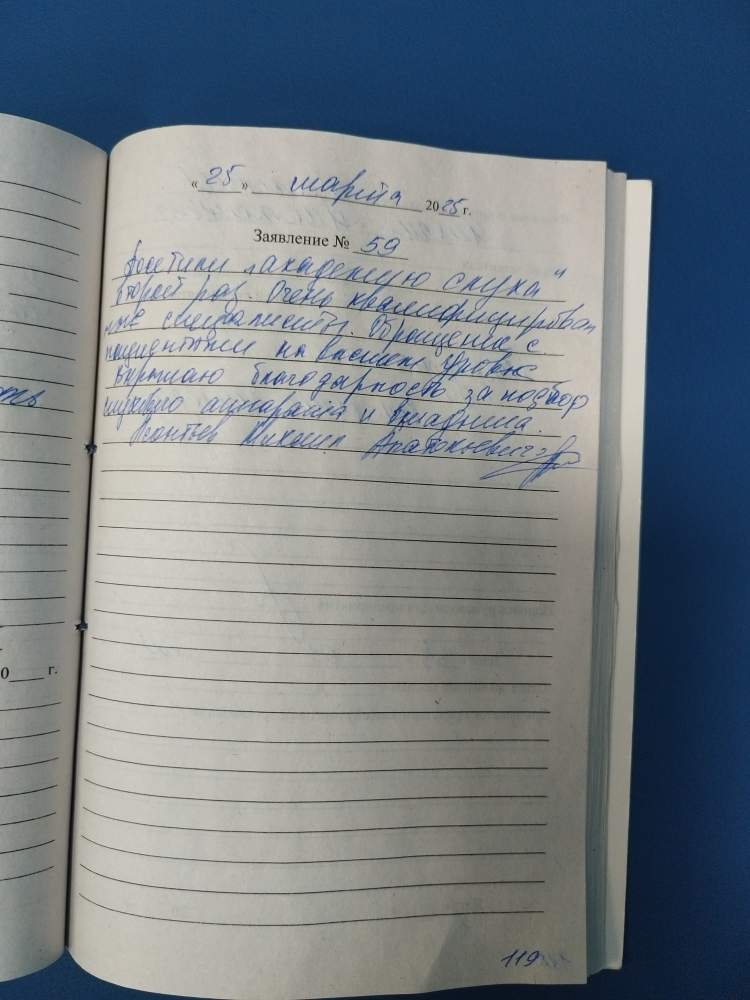 « 25 » марта 2025 г.
Заявление № 59
Посетили „Академию слуха"
второй раз. Очень квалифицирован
ные специалисты. Обращение с
пациентами на высшем уровне
Выражаю благодарность за подбор
слухового аппарата и вкладыша.
Леонтьев Михаил Анатольевич
0 г.
119